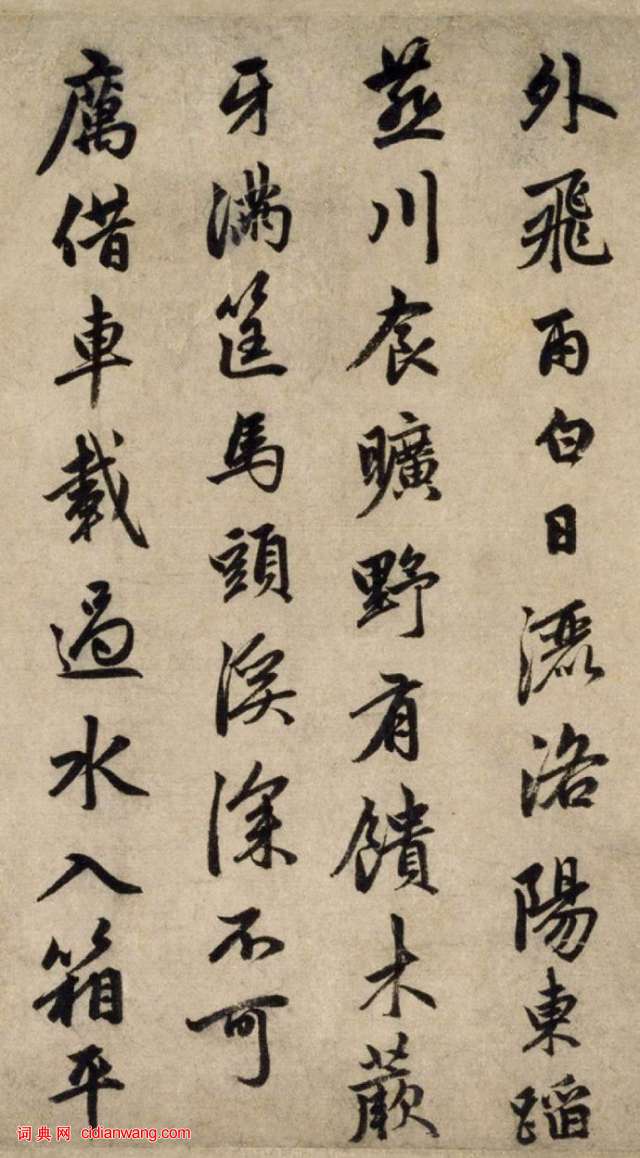 外飛雨白日灑洛陽東蹈
燕川食曠野有饋木蕨
牙滿筐馬頭溪深不可
厲借車載過水入箱平
词典网 cidianwang.com